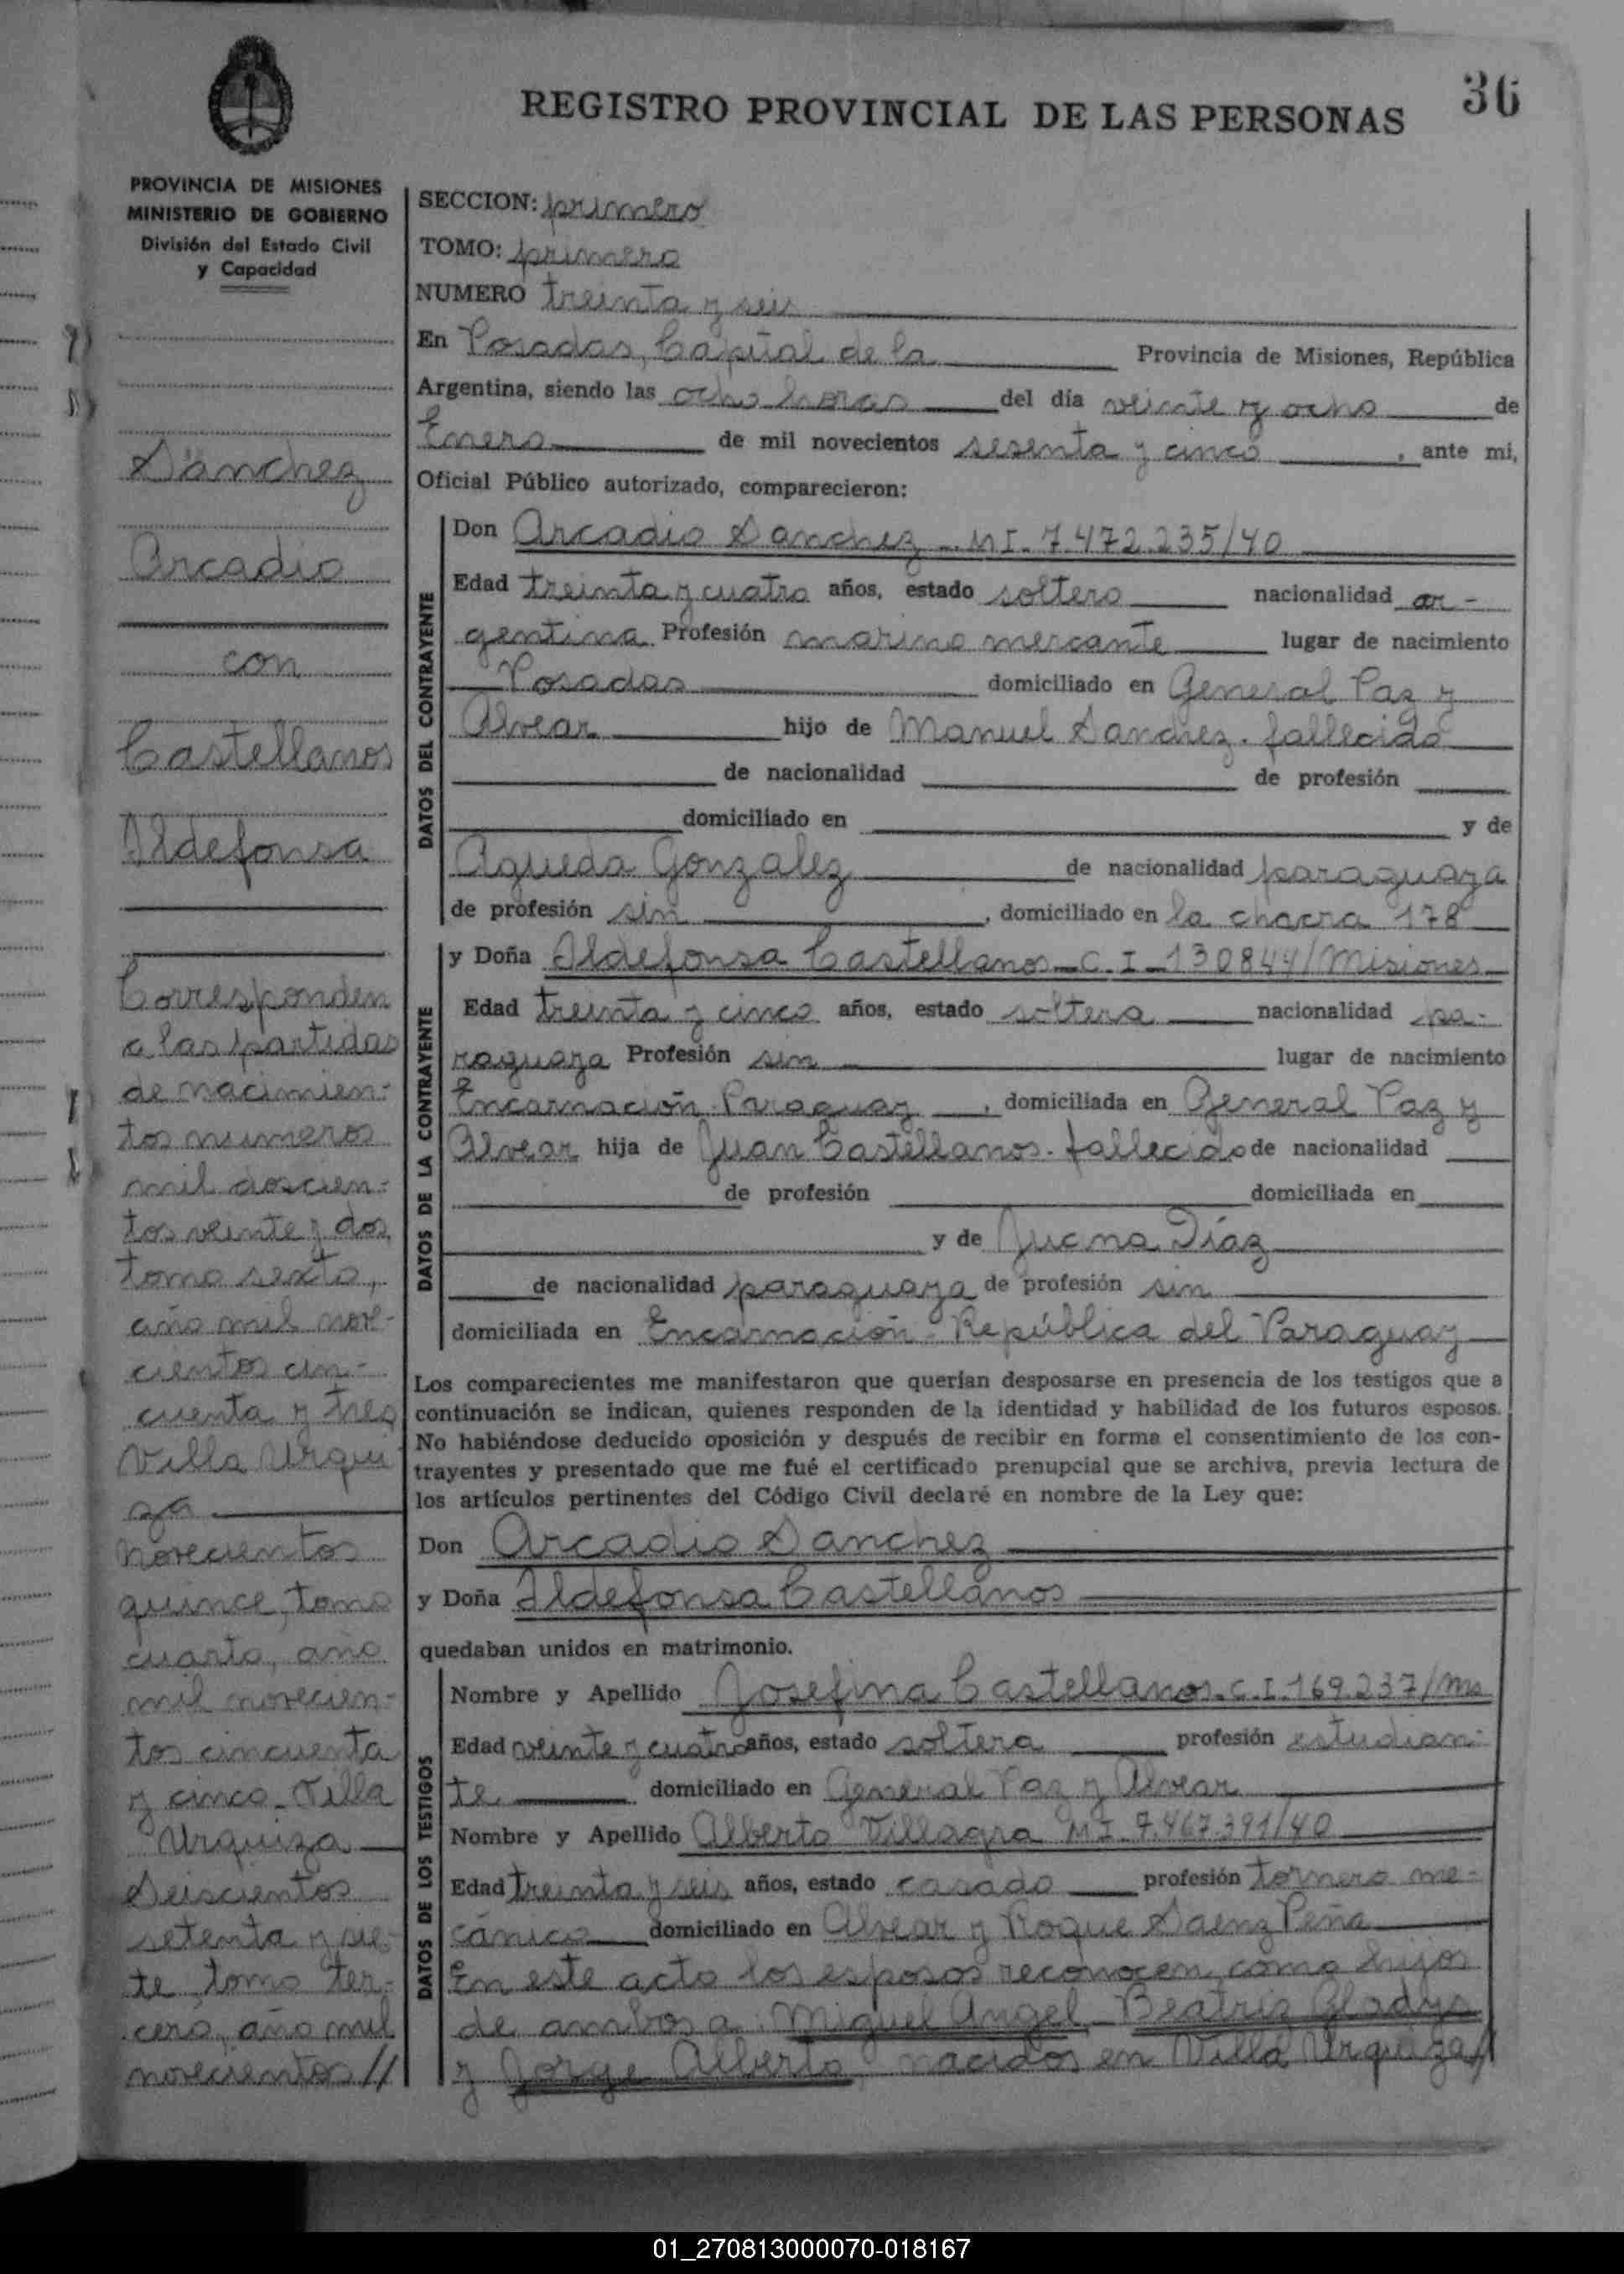 REGISTRO PROVINCIAL DE LAS PERSONAS
36
PROVINCIA DE MISIONES
MINISTERIO DE GOBIERNO
División del Estado Civil
y Capacidad
Sánchez
Arcadio
con
Castellanos
Ildefonsa
Corresponden
a las partidas
de nacimien-
tos numeros
mil doscien-
tos veinte y dos,
tomo sexto,
año mil nove-
cientos cin-
cuenta y tres
Villa Urqui
za
novecientos
quince, tomo
cuarto, año
mil novecien-
tos cincuenta
y cinco - Villa
Urquiza
Seiscientos
setenta y sie-
te, tomo ter-
cero, año mil
novecientos //
SECCION: primero
TOMO: primero
NUMERO treinta y seis
En Posadas, Capital de la Provincia de Misiones, República
Argentina, siendo las ocho horas del día veinte y ocho de
Enero de mil novecientos sesenta y cinco, ante mi,
Oficial Público autorizado, comparecieron:
DATOS DEL CONTRAYENTE
Don Arcadio Sanchez - M I. 7.472.235/40
Edad treinta y cuatro años, estado soltero nacionalidad ar-
gentina Profesión marino mercante lugar de nacimiento
Posadas domiciliado en General Paz y
Alvear hijo de Manuel Sanchez - fallecido
de nacionalidad de profesión
domiciliado en y de
Agueda Gonzalez de nacionalidad paraguaya
de profesión sin, domiciliado en la chacra 178
DATOS DE LA CONTRAYENTE
y Doña Ildefonsa Castellanos - C. I - 130844/Misiones
Edad treinta y cinco años, estado soltera nacionalidad pa-
raguaya Profesión sin lugar de nacimiento
Encarnación - Paraguay, domiciliada en General Paz y
Alvear hija de Juan Castellanos - fallecido de nacionalidad
de profesión domiciliada en
y de Juana Díaz
de nacionalidad paraguaya de profesión sin
domiciliada en Encarnación - República del Paraguay
Los comparecientes me manifestaron que querían desposarse en presencia de los testigos que a
continuación se indican, quienes responden de la identidad y habilidad de los futuros esposos.
No habiéndose deducido oposición y después de recibir en forma el consentimiento de los con-
trayentes y presentado que me fué el certificado prenupcial que se archiva, previa lectura de
los artículos pertinentes del Código Civil declaré en nombre de la Ley que:
Don Arcadio Sanchez
y Doña Ildefonsa Castellanos
quedaban unidos en matrimonio.
DATOS DE LOS TESTIGOS
Nombre y Apellido Josefina Castellanos - C. I. 169.237/Ms
Edad veinte y cuatro años, estado soltera profesión estudian-
te domiciliado en General Paz y Alvear
Nombre y Apellido Alberto Villagra M I. 7.467.391/40
Edad treinta y seis años, estado casado profesión tornero me-
cánico domiciliado en Alvear y Roque Saenz Peña
En este acto los esposos reconocen como hijos
de ambos a: Miguel Angel - Beatriz Gladys
y Jorge Alberto, nacidos en Villa Urquiza //
01_270813000070-018167